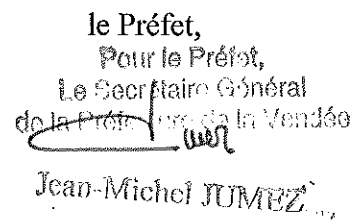 le Préfet,
Pour le Préfet,
Le Secrétaire Général
de la Préfecture de la Vendée
Jean-Michel JUMEZ